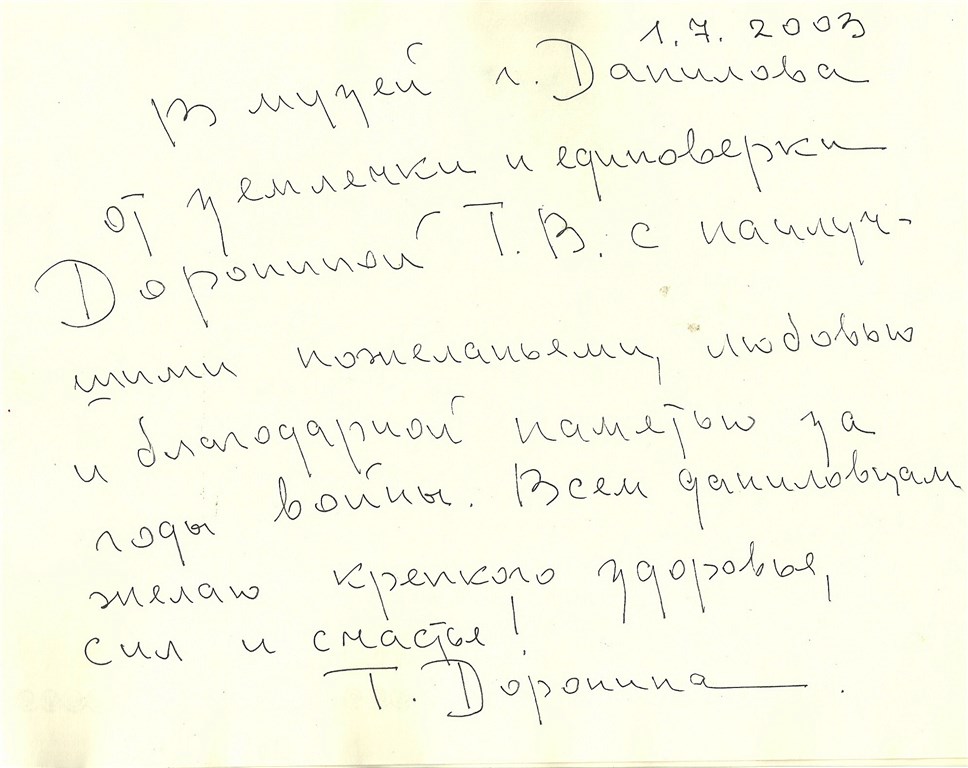 1.7.2003
В музей г. Данилова
от землячки и единоверки
Дорониной Т.В. с наилуч-
шими пожеланьями, любовью
и благодарной памятью за
годы войны. Всем даниловцам
желаю крепкого здоровья,
сил и счастья!
Т. Доронина.